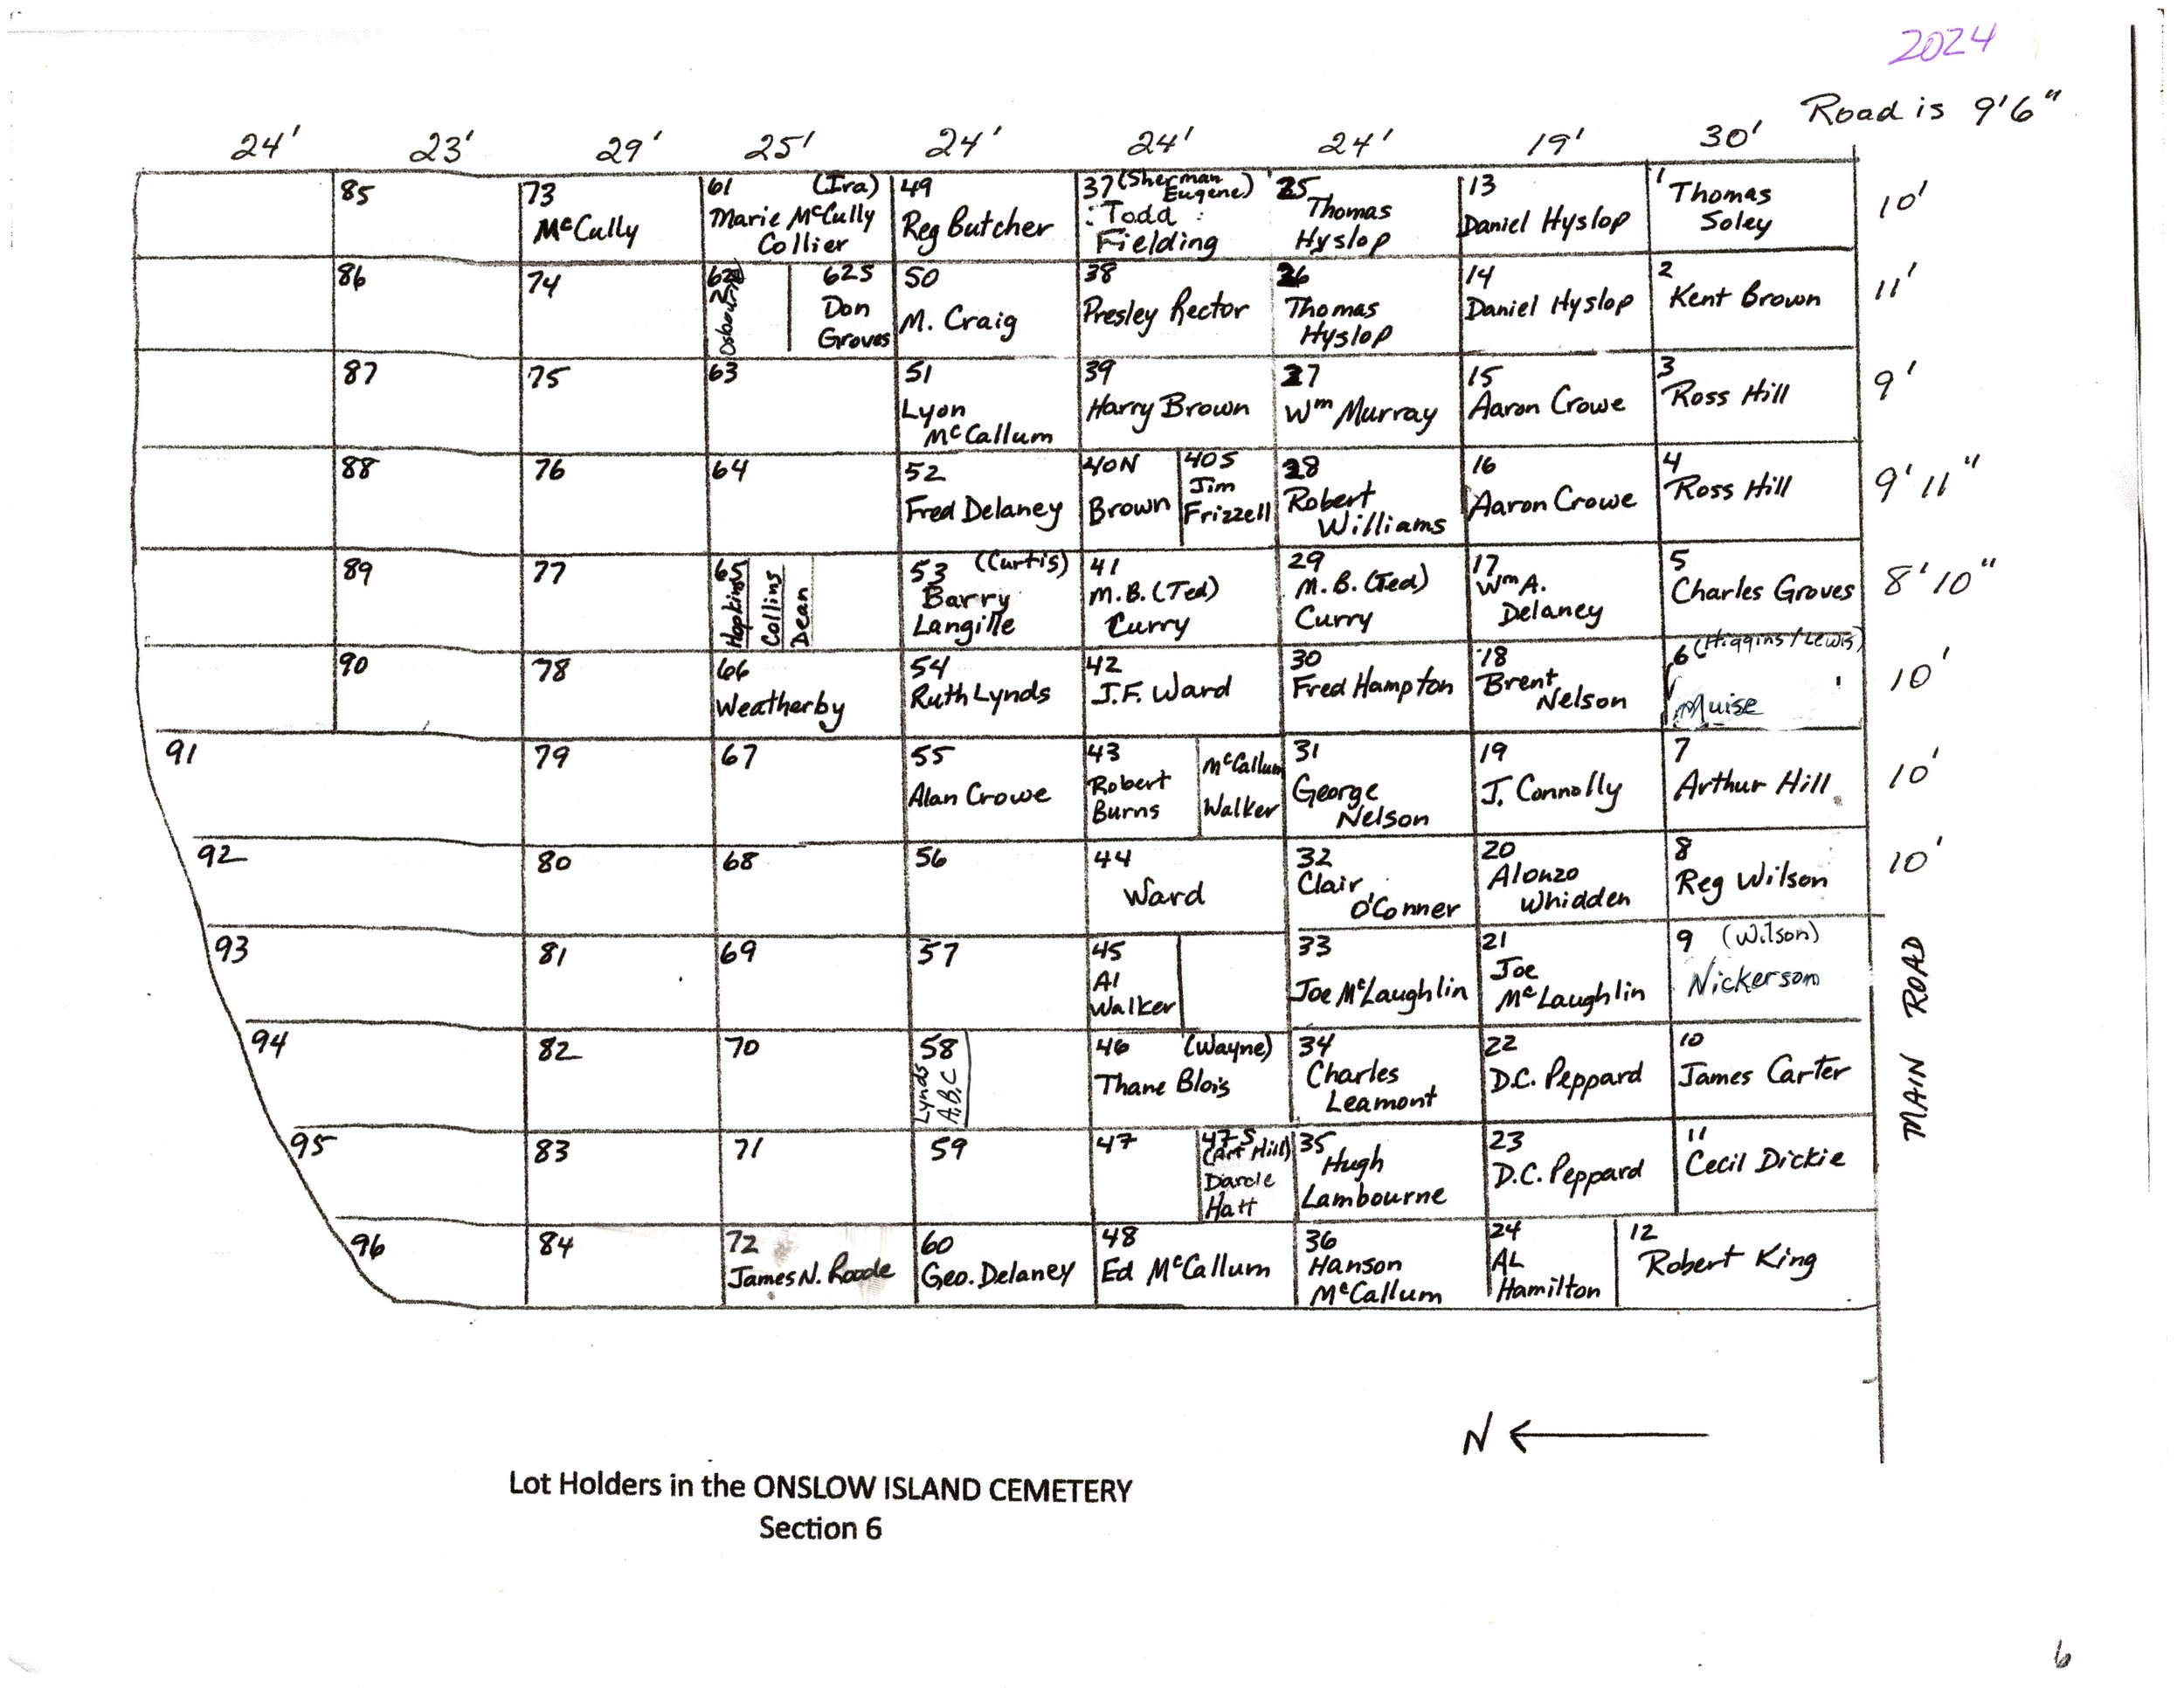 2024
Road is 9'6"
24' 23' 29' 25' 24' 24' 24' 19' 30'
85
73
McCully
61 (Ira)
Marie McCully
Collier
49
Reg Butcher
37 (Sherman
Eugene)
Todd
Fielding
25
Thomas
Hyslop
13
Daniel Hyslop
1
Thomas
Soley
10'
86
74
62N
62S
Don
Groves
50
M. Craig
38
Presley Rector
26
Thomas
Hyslop
14
Daniel Hyslop
2
Kent Brown
11'
87
75
63
51
Lyon
McCallum
39
Harry Brown
27
Wm Murray
15
Aaron Crowe
3
Ross Hill
9'
88
76
64
52
Fred Delaney
40N
Brown
40S
Jim
Frizzell
28
Robert
Williams
16
Aaron Crowe
4
Ross Hill
9'11"
89
77
65
Hopkins
Collins
Dean
53 (Curtis)
Barry
Langille
41
M.B. (Ted)
Curry
29
M.B. (Ted)
Curry
17
Wm A.
Delaney
5
Charles Groves
8'10"
90
78
66
Weatherby
54
Ruth Lynds
42
J.F. Ward
30
Fred Hampton
18
Brent
Nelson
6 (Higgins/Lewis)
Muise
10'
91
79
67
55
Alan Crowe
43
Robert
Burns
McCallum
Walker
31
George
Nelson
19
J. Connolly
7
Arthur Hill
10'
92
80
68
56
44
Ward
32
Clair
O'Conner
20
Alonzo
Whidden
8
Reg Wilson
10'
93
81
69
57
45
Al
Walker
33
Joe McLaughlin
21
Joe
McLaughlin
9 (Wilson)
Nickerson
MAIN ROAD
94
82
70
58
Lynds
A,B,C
46 (Wayne)
Thane Blois
34
Charles
Leamont
22
D.C. Peppard
10
James Carter
95
83
71
59
47
47S
(Art Hill)
Darcle
Hatt
35
Hugh
Lambourne
23
D.C. Peppard
11
Cecil Dickie
96
84
72
James N. Roode
60
Geo. Delaney
48
Ed McCallum
36
Hanson
McCallum
24
AL
Hamilton
12
Robert King
N
Lot Holders in the ONSLOW ISLAND CEMETERY
Section 6
6